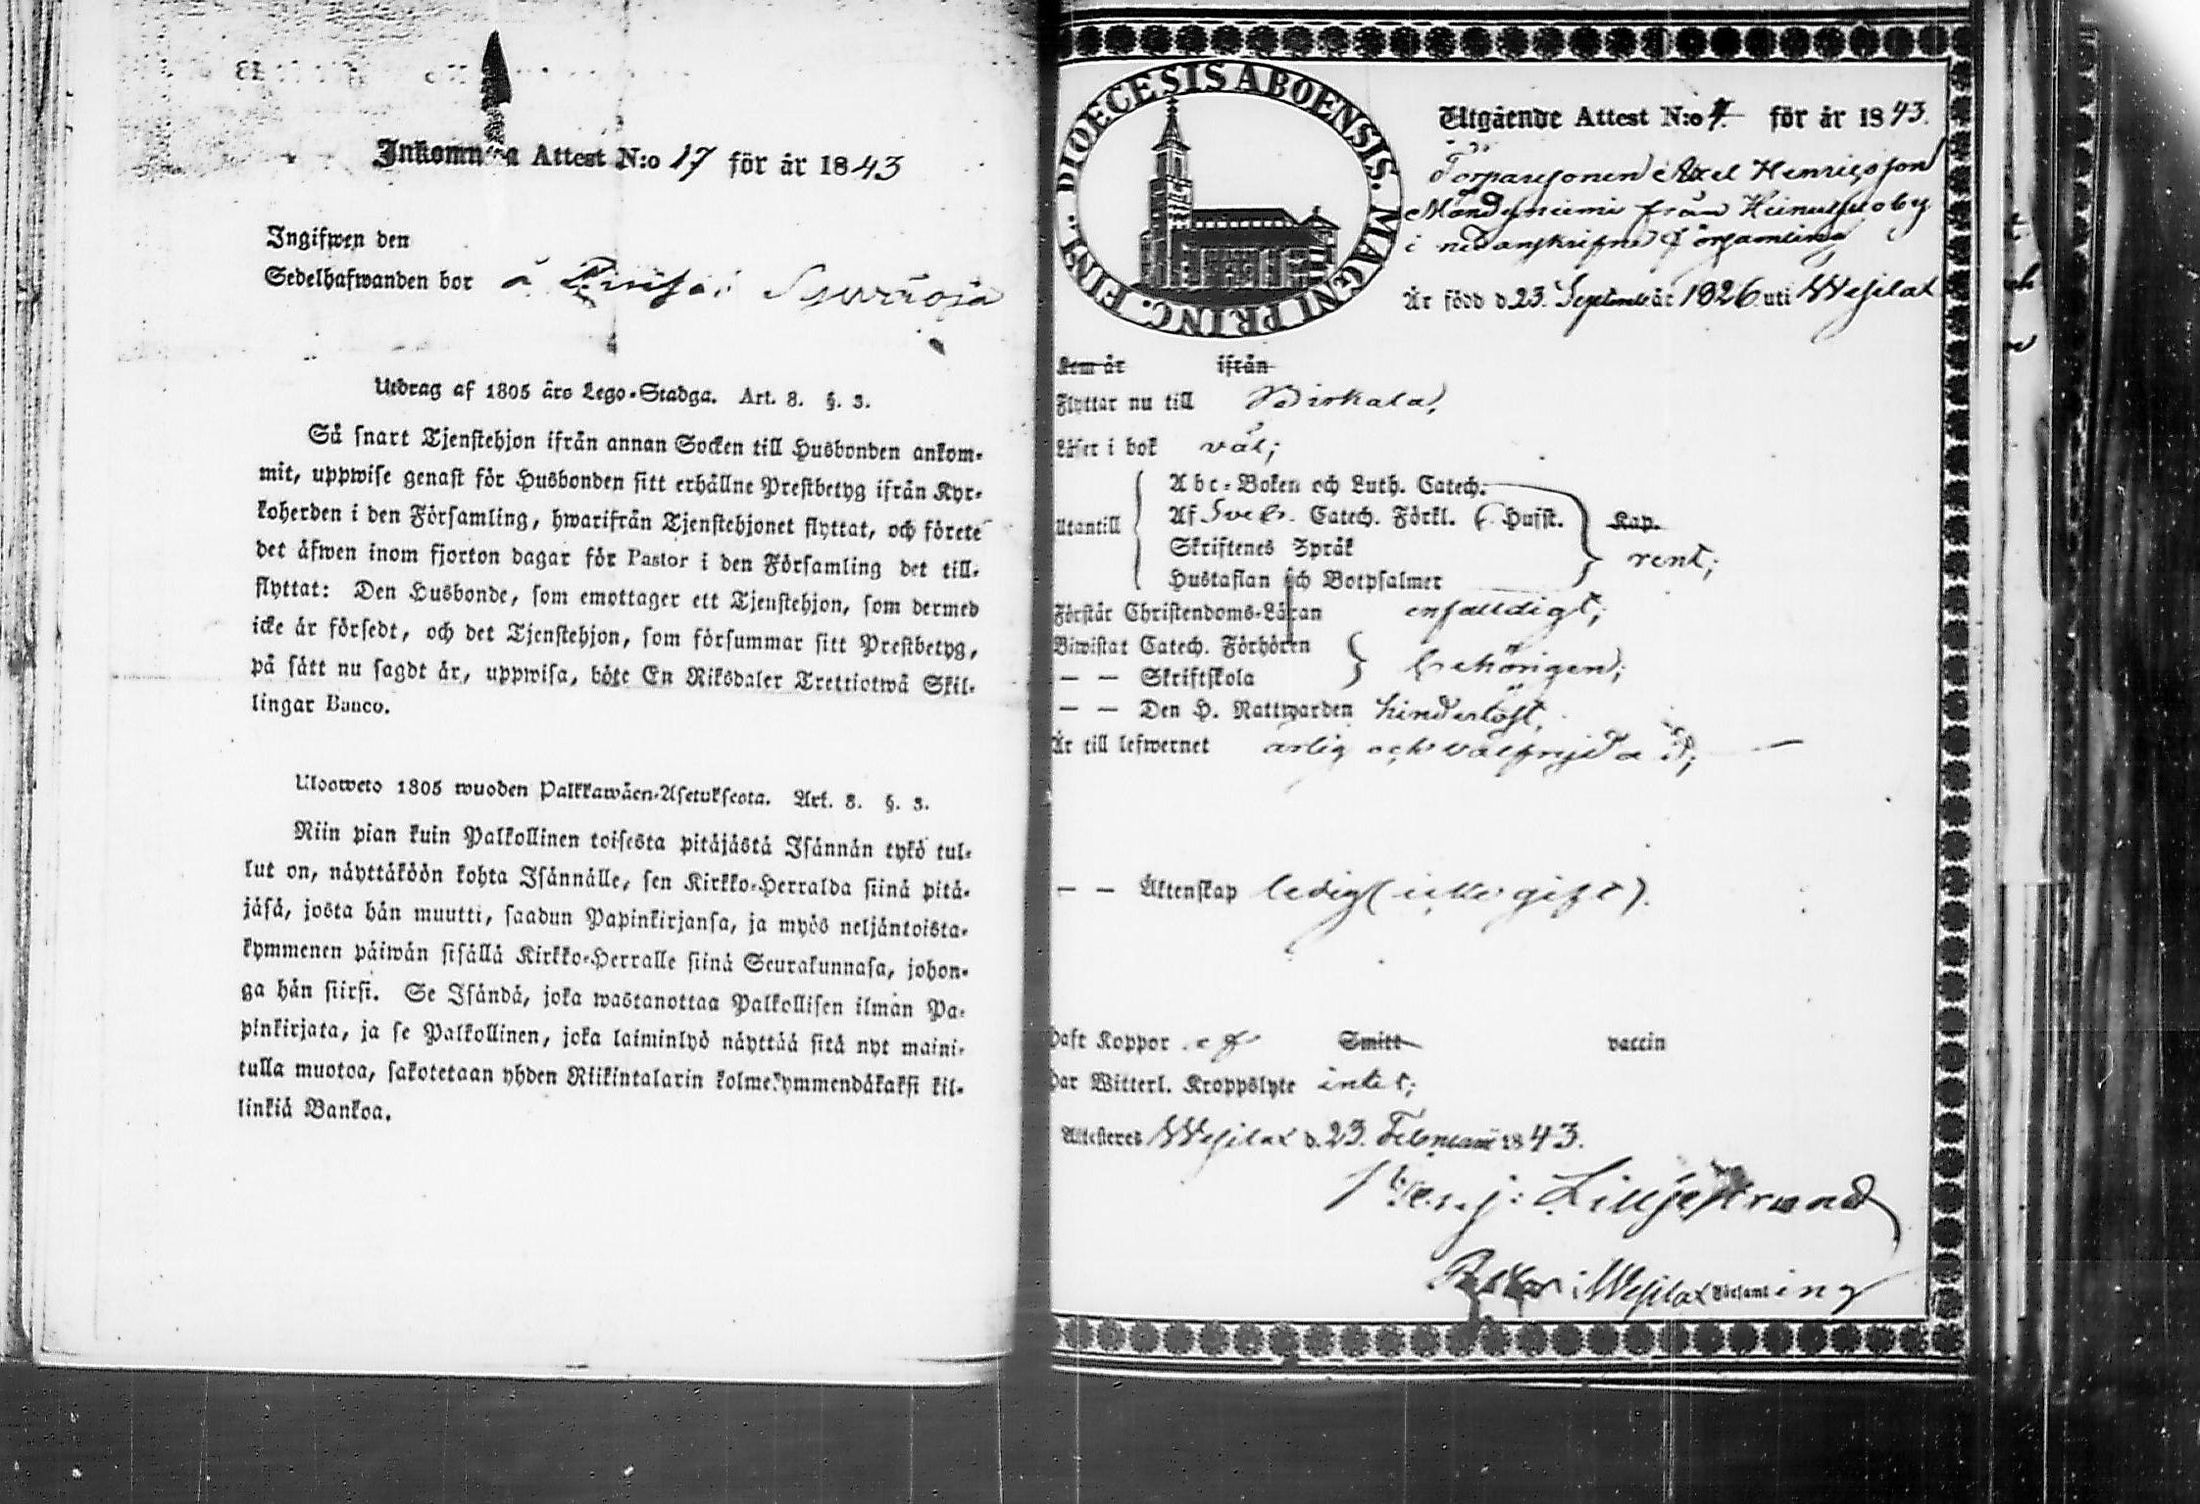 Inkomna Attest N:o 17 för år 1843
Ingifwen den
Sedelhafwanden bor å
Utdrag af 1805 års Lego-Stadga. Art. 8. §. 3.
Så snart Tjenstehjon ifrån annan Socken till Husbonden ankom-
mit, uppwise genast för Husbonden sitt erhållne Prestbetyg ifrån Kyr-
koherden i den Församling, hwarifrån Tjenstehjonet flyttat, och förete
det äfwen inom fjorton dagar för Pastor i den Församling det till-
flyttat: Den Husbonde, som emottager ett Tjenstehjon, som dermed
icke är försedt, och det Tjenstehjon, som försummar sitt Prestbetyg,
på sätt nu sagdt är, uppwisa, böte En Riksdaler Trettiotwå Skil-
lingar Banco.
Ulosweto 1805 wuoden Palkkawäen-Asetuksesta. Art. 8. §. 3.
Niin pian kuin Palkollinen toisesta pitäjästä Isännän tykö tul-
lut on, näyttäköön kohta Isännälle, sen Kirkko-Herralda siinä pitä-
jäsä, josta hän muutti, saadun Papinkirjansa, ja myös neljäntoista-
kymmenen päiwän sisällä Kirkko-Herralle siinä Seurakunnasa, johon-
ga hän siirsi. Se Isändä, joka wastanottaa Palkollisen ilman Pa-
pinkirjata, ja se Palkollinen, joka laiminlyö näyttää sitä nyt maini-
tulla muotoa, sakotetaan yhden Riikintalarin kolmekymmendäkaksi kil-
linkiä Bankoa.
DIOECESIS ABOENSIS. MAGNI PRINC. FINL.
Utgående Attest N:o 4 för år 1843.
Torparesonen Axel Henricsson
från by
i nedanskrifne Församling
Är född d. 23. September år 1826 uti Wesilax
Kom år ifrån
Flyttar nu till Birkala,
Läser i bok väl;
Utantill
Abc-Boken och Luth. Catech.
Af Sveb. Catech. Förkl. Husst. Kap.
Skriftenes Språk
rent;
Hustaflan och Botpsalmer
Förstår Christendoms-Läran enfaldigt;
Biwistat Catech. Förhören
— — Skriftskola
behörigen;
— — Den H. Nattwarden hinderlöst,
Är till lefwernet ärlig och välfrejdad;
— — Äktenskap ledig (icke gift).
Haft Koppor ej Smitt vaccin
Har Witterl. Kroppslyte intet;
Attesteras Wesilax d. 23. Februarii 1843.
Lilljestrand
Pastor i Wesilax Församling